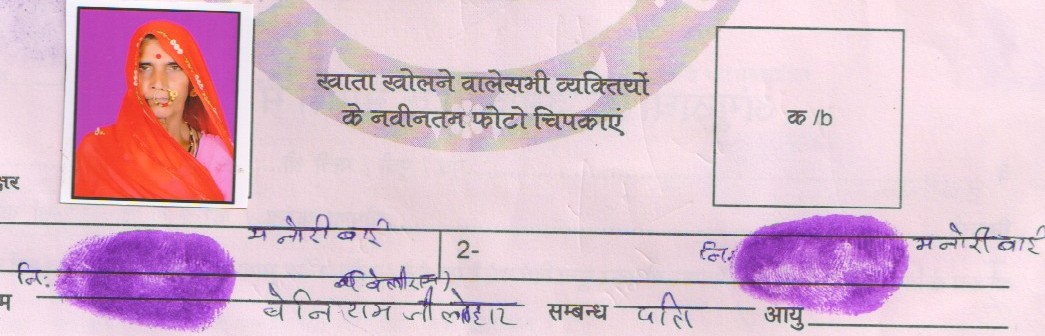 खाता खोलने वाले सभी व्यक्तियों
के नवीनतम फोटो चिपकाएं
क /b
क्षर
मनोरी बाई 2- नि: मनोरी बाई
नि:
म वेनिराम जी लोहार सम्बन्ध पति आयु